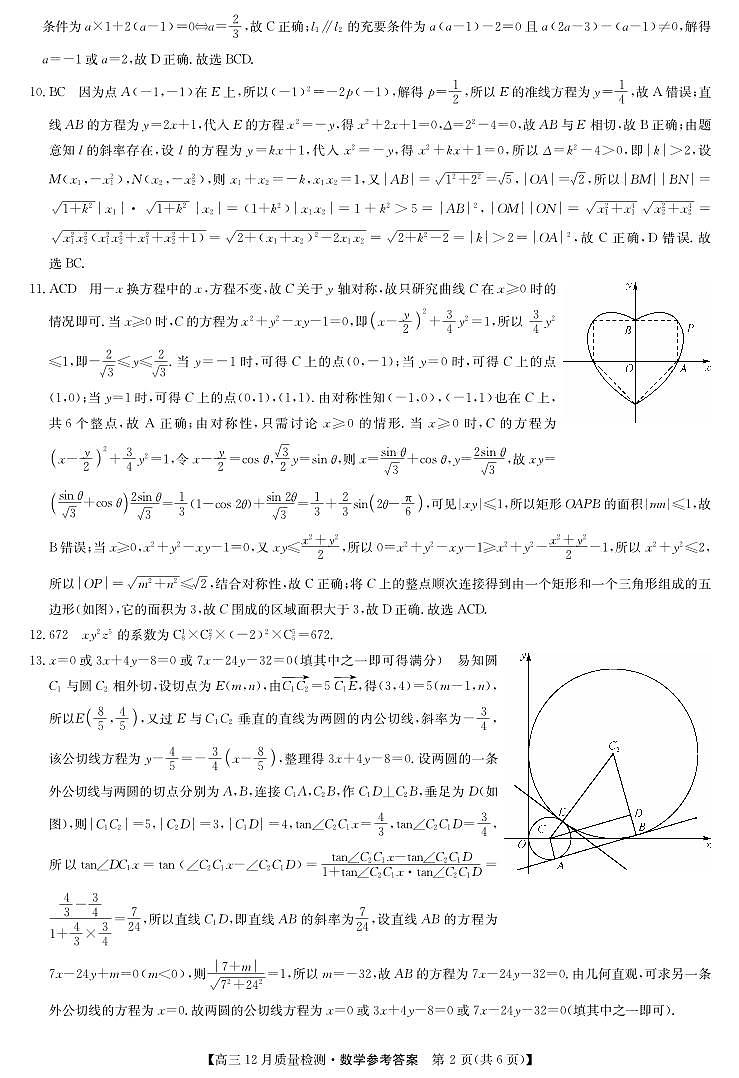 条件为 a×1+2(a−1)=0⇔a=2/3,故 C 正确;l₁∥l₂ 的充要条件为 a(a−1)−2=0 且 a(2a−3)−(a−1)≠0,解得
a=−1 或 a=2,故 D 正确.故选 BCD.
10.BC 因为点 A(−1,−1)在 E 上,所以(−1)²=−2p(−1),解得 p=1/2,所以 E 的准线方程为 y=1/4,故 A 错误;直
线 AB 的方程为 y=2x+1,代入 E 的方程 x²=−y,得 x²+2x+1=0,Δ=2²−4=0,故 AB 与 E 相切,故 B 正确;由题
意知 l 的斜率存在,设 l 的方程为 y=kx+1,代入 x²=−y,得 x²+kx+1=0,所以 Δ=k²−4>0,即|k|>2,设
M(x₁,−x₁²),N(x₂,−x₂²),则 x₁+x₂=−k,x₁x₂=1,又|AB|=√(1²+2²)=√5,|OA|=√2,所以|BM||BN|=
√(1+k²)|x₁|·√(1+k²)|x₂|=(1+k²)|x₁x₂|=1+k²>5=|AB|²,|OM||ON|=√(x₁²+x₁⁴)√(x₂²+x₂⁴)=
√(x₁²x₂²(x₁²x₂²+x₁²+x₂²+1))=√(2+(x₁+x₂)²−2x₁x₂)=√(2+k²−2)=|k|>2=|OA|²,故 C 正确,D 错误.故
选 BC.
11.ACD 用−x 换方程中的 x,方程不变,故 C 关于 y 轴对称,故只研究曲线 C 在 x≥0 时的
情况即可.当 x≥0 时,C 的方程为 x²+y²−xy−1=0,即(x−y/2)²+3/4y²=1,所以 3/4y²
≤1,即−2/√3≤y≤2/√3.当 y=−1 时,可得 C 上的点(0,−1);当 y=0 时,可得 C 上的点
(1,0);当 y=1 时,可得 C 上的点(0,1),(1,1).由对称性知(−1,0),(−1,1)也在 C 上,
共 6 个整点,故 A 正确;由对称性,只需讨论 x≥0 的情形.当 x≥0 时,C 的方程为
(x−y/2)²+3/4y²=1,令 x−y/2=cos θ,√3/2y=sin θ,则 x=sin θ/√3+cos θ,y=2sin θ/√3,故 xy=
(sin θ/√3+cos θ)2sin θ/√3=1/3(1−cos 2θ)+sin 2θ/√3=1/3+2/3sin(2θ−π/6),可见|xy|≤1,所以矩形 OAPB 的面积|mn|≤1,故
B 错误;当 x≥0,x²+y²−xy−1=0,又 xy≤(x²+y²)/2,所以 0=x²+y²−xy−1≥x²+y²−(x²+y²)/2−1,所以 x²+y²≤2,
所以|OP|=√(m²+n²)≤√2,结合对称性,故 C 正确;将 C 上的整点顺次连接得到由一个矩形和一个三角形组成的五
边形(如图),它的面积为 3,故 C 围成的区域面积大于 3,故 D 正确.故选 ACD.
y
B
P
O
A
x
12.672 xy²z⁵ 的系数为 C₈¹×C₇²×(−2)²×C₅⁵=672.
13.x=0 或 3x+4y−8=0 或 7x−24y−32=0(填其中之一即可得满分) 易知圆
C₁ 与圆 C₂ 相外切,设切点为 E(m,n),由C₁C₂=5 C₁E,得(3,4)=5(m−1,n),
所以E(8/5,4/5),又过 E 与 C₁C₂ 垂直的直线为两圆的内公切线,斜率为−3/4,
该公切线方程为 y−4/5=−3/4(x−8/5),整理得 3x+4y−8=0.设两圆的一条
外公切线与两圆的切点分别为 A,B,连接 C₁A,C₂B,作 C₁D⊥C₂B,垂足为 D(如
图),则|C₁C₂|=5,|C₂D|=3,|C₁D|=4,tan∠C₂C₁x=4/3,tan∠C₂C₁D=3/4,
所以 tan∠DC₁x=tan(∠C₂C₁x−∠C₂C₁D)=(tan∠C₂C₁x−tan∠C₂C₁D)/(1+tan∠C₂C₁x·tan∠C₂C₁D)=
(4/3−3/4)/(1+4/3×3/4)=7/24,所以直线 C₁D,即直线 AB 的斜率为7/24,设直线 AB 的方程为
7x−24y+m=0(m<0),则|7+m|/√(7²+24²)=1,所以 m=−32,故 AB 的方程为 7x−24y−32=0.由几何直观,可求另一条
外公切线的方程为 x=0.故两圆的公切线方程为 x=0 或 3x+4y−8=0 或 7x−24y−32=0(填其中之一即可).
y
C₂
E
D
C
B
O
A
x
【高三 12 月质量检测·数学参考答案 第 2 页(共 6 页)】